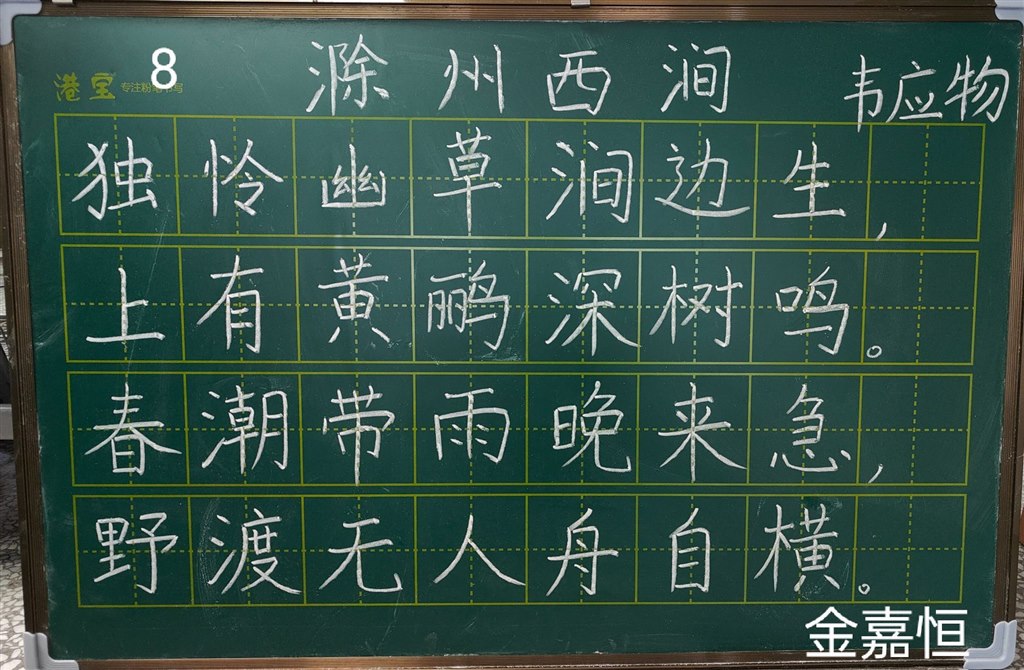 8
港宝 专注粉笔书写
滁州西涧
韦应物
独怜幽草涧边生,
上有黄鹂深树鸣。
春潮带雨晚来急,
野渡无人舟自横。
金嘉恒